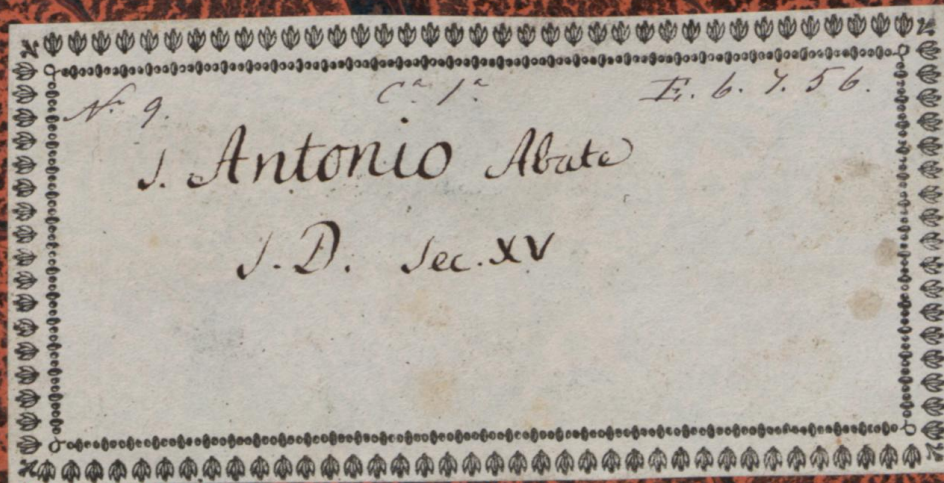 N.º 9. Cª. 1ª E. 6. 7. 56.
S. Antonio Abate
S. D. Sec. XV